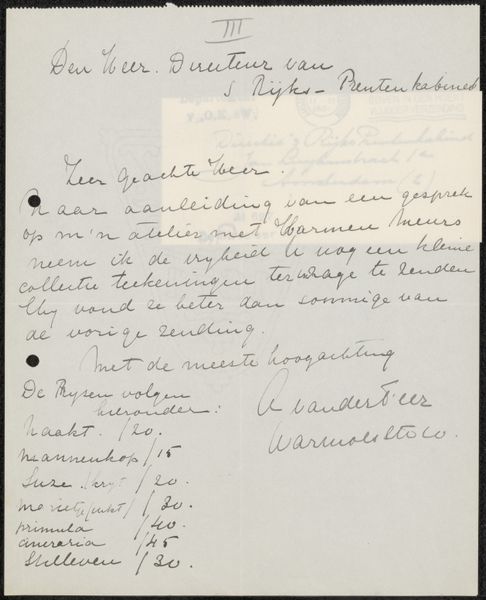 III
Den Heer. Directeur van
s Rijks - Prentenkabinet
Zeer geachte Heer.
Naar aanleiding van een gesprek
op m'n atelier met Harmen Meurs
neem ik de vryheid U nog een kleine
collectie teekeningen ter inzage te zenden
Hy vond ze beter dan sommige van
de vorige zending.
Met de meeste hoogachting
A van der Feer
De Prysen volgen
hieronder:
Naakt. /20.
mannenkop /15
Suze (kryt) /20.
/30.
primula /40.
cineraria /45
Stilleven /30.